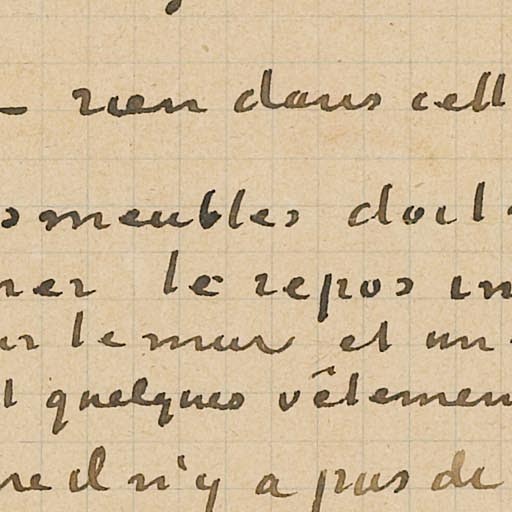 — rien dans cell
s meubles doit
rer le repos in
ur le mur et un
t quelques vêtemen
re il n'y a pas de